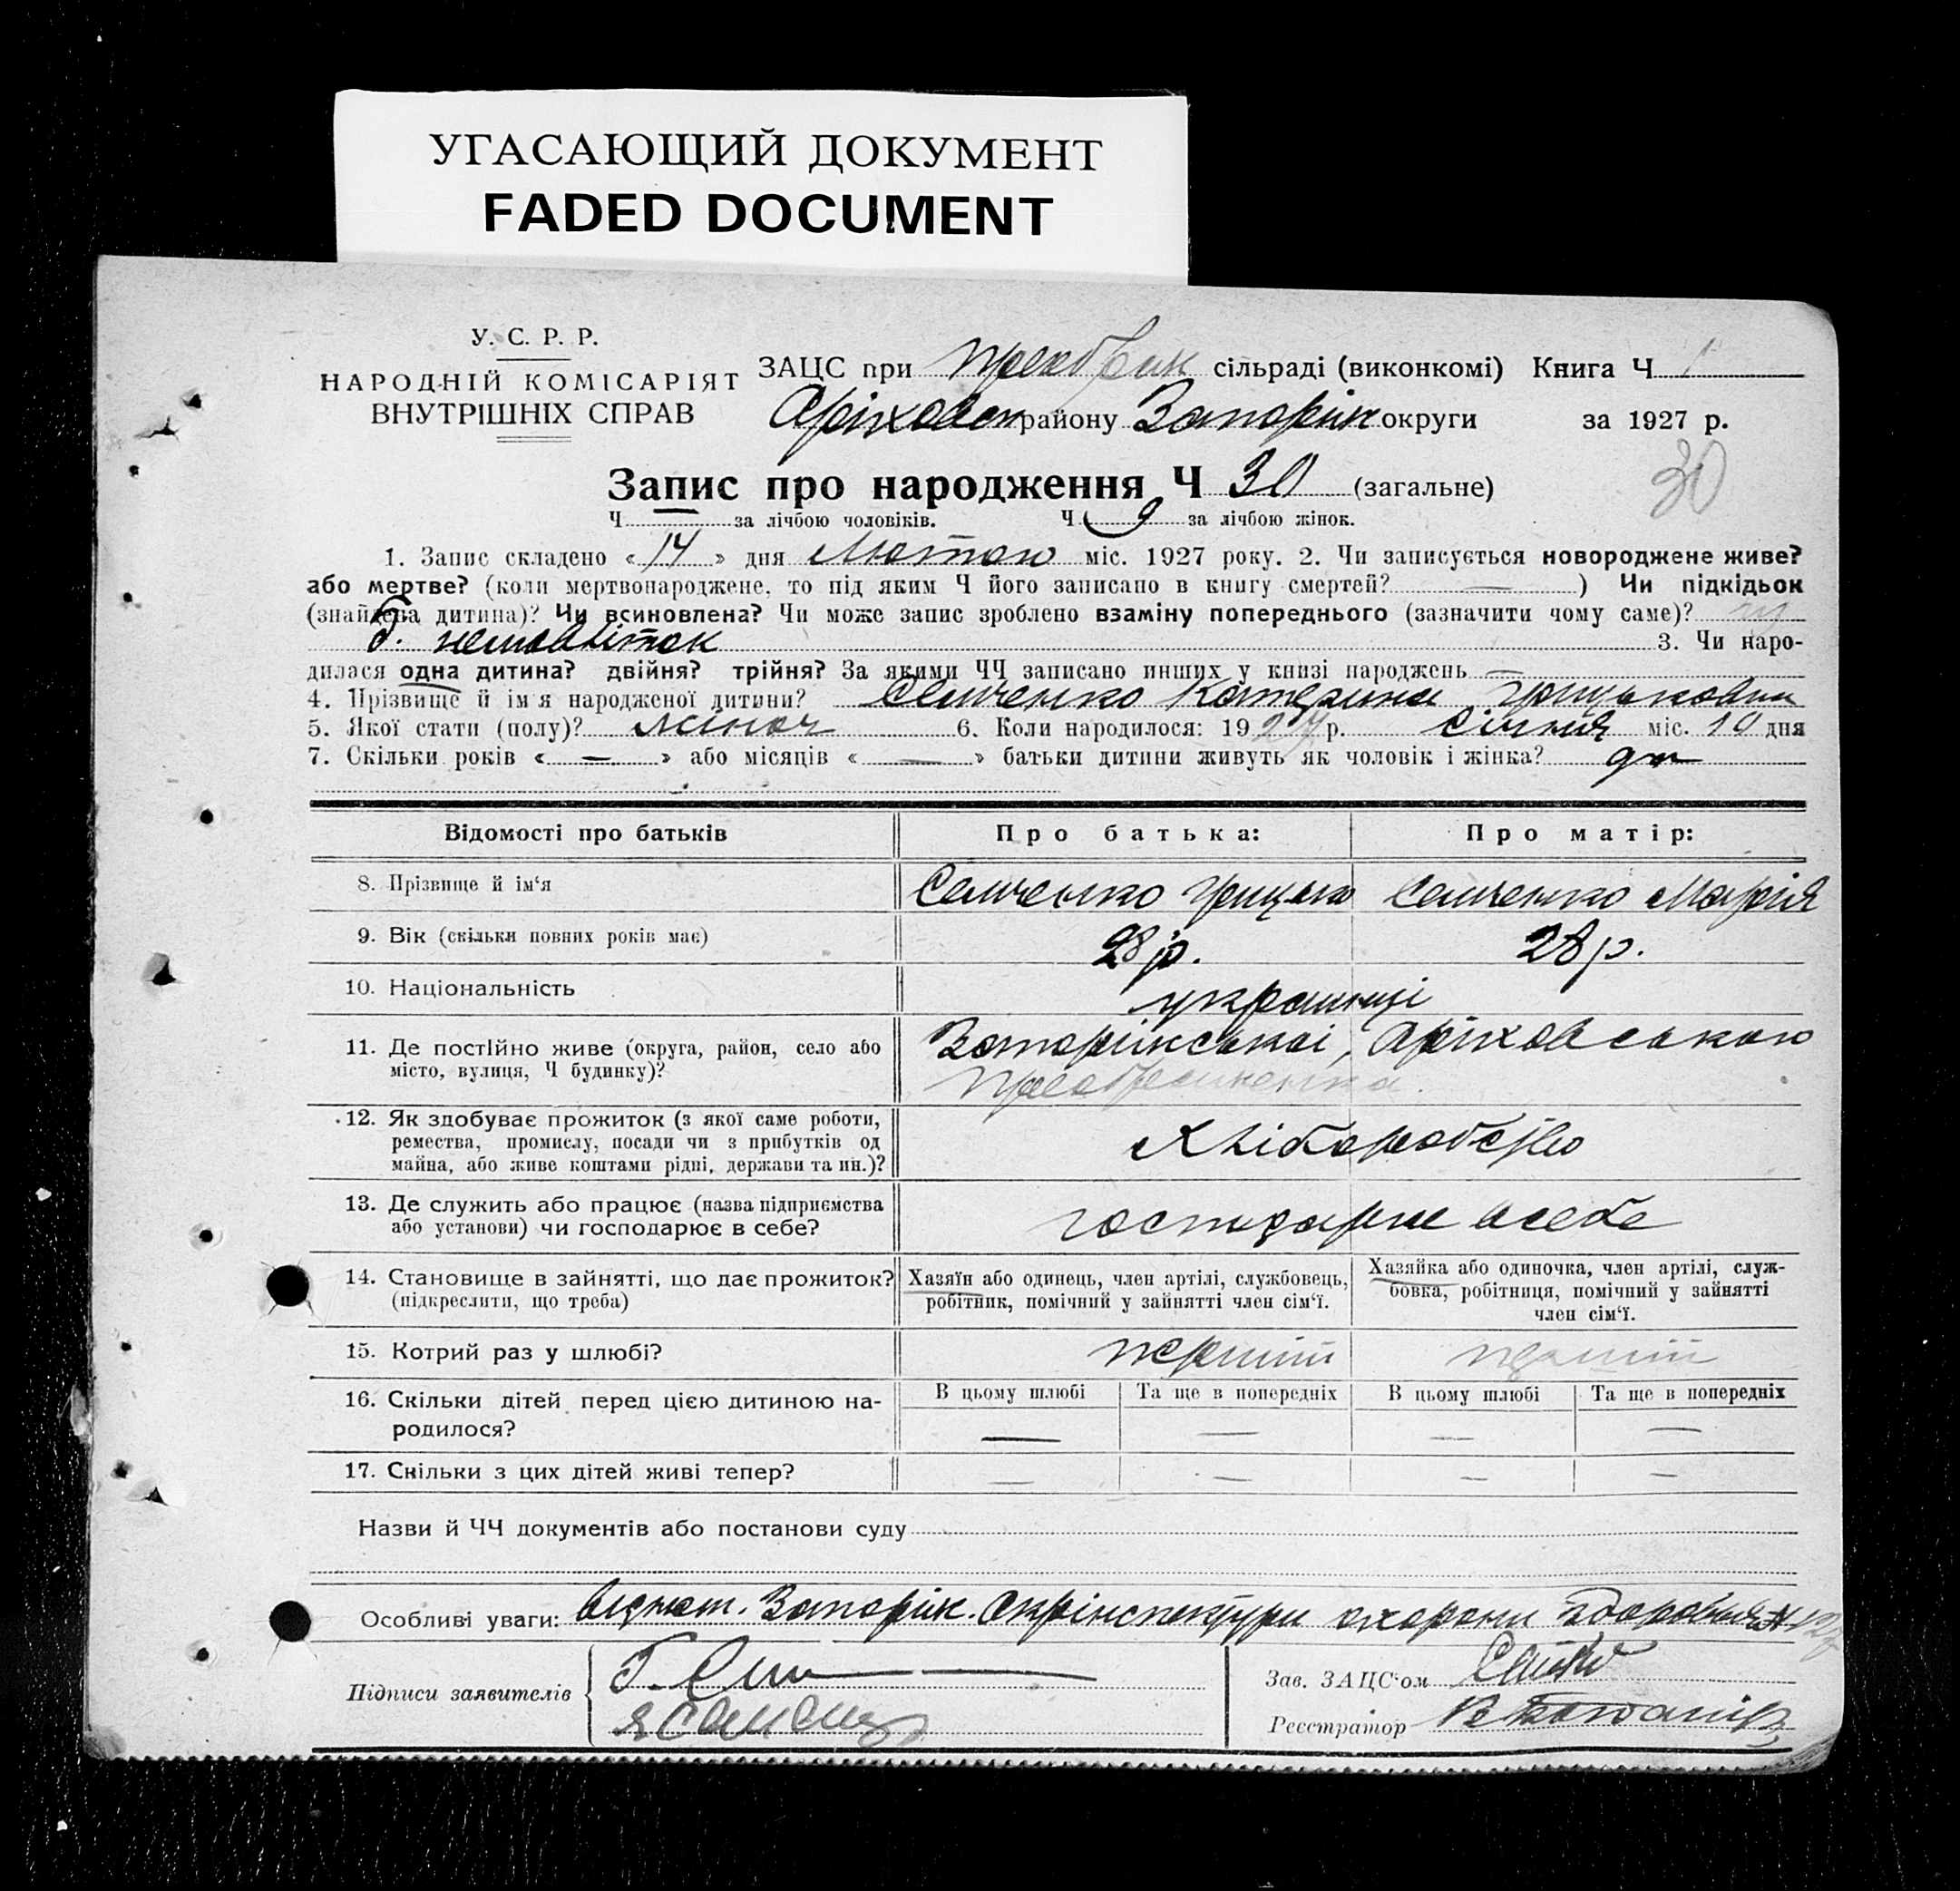 УГАСАЮЩИЙ ДОКУМЕНТ
FADED DOCUMENT
У. С. Р. Р.
НАРОДНІЙ КОМІСАРІЯТ
ВНУТРІШНІХ СПРАВ
ЗАЦС при сільраді (виконкомі) Книга Ч 1
Оріховск району Запоріж округи за 1927 р.
Запис про народження Ч 30 (загальне)
30
Ч — за лічбою чоловіків. Ч 9 за лічбою жінок.
1. Запис складено « 14 » дня Лютого міс. 1927 року. 2. Чи записується новороджене живе?
або мертве? (коли мертвонароджене, то під яким Ч його записано в книгу смертей? — ) Чи підкідьок
(знайдена дитина)? Чи всиновлена? Чи може запис зроблено взаміну попереднього (зазначити чому саме)?
3. Чи наро-
дилася одна дитина? двійня? трійня? За якими ЧЧ записано инших у книзі народжень —
4. Прізвище й ім'я народженої дитини? Семченко Катерина Грицьковна
5. Якої стати (полу)? жіноч 6. Коли народилося: 1927 р. Січня міс. 10 дня
7. Скільки років « — » або місяців « — » батьки дитини живуть як чоловік і жінка?
Відомості про батьків Про батька: Про матір:
8. Прізвище й ім'я Семченко Грицько Семченко Марія
9. Вік (скільки повних років має) 28 р. 28 р.
10. Національність українці
11. Де постійно живе (округа, район, село або
місто, вулиця, Ч будинку)?
Запоріжської, Оріховського
12. Як здобуває прожиток (з якої саме роботи,
ремества, промислу, посади чи з прибутків од
майна, або живе коштами рідні, держави та ин.)?
Хліборобство
13. Де служить або працює (назва підприємства
або установи) чи господарює в себе?
господарює в себе
14. Становище в зайнятті, що дає прожиток?
(підкреслити, що треба)
Хазяїн або одинець, член артілі, службовець,
робітник, помічний у зайнятті член сім'ї.
Хазяйка або одиночка, член артілі, служ-
бовка, робітниця, помічний у зайнятті
член сім'ї.
15. Котрий раз у шлюбі? перший перший
16. Скільки дітей перед цією дитиною на-
родилося?
В цьому шлюбі Та ще в попередніх В цьому шлюбі Та ще в попередніх
— — — —
17. Скільки з цих дітей живі тепер? — — — —
Назви й ЧЧ документів або постанови суду
Особливі уваги: Запоріж. Окрінспектури охорони здоровья №
Підписи заявителів
Зав. ЗАЦС'ом
Реєстратор